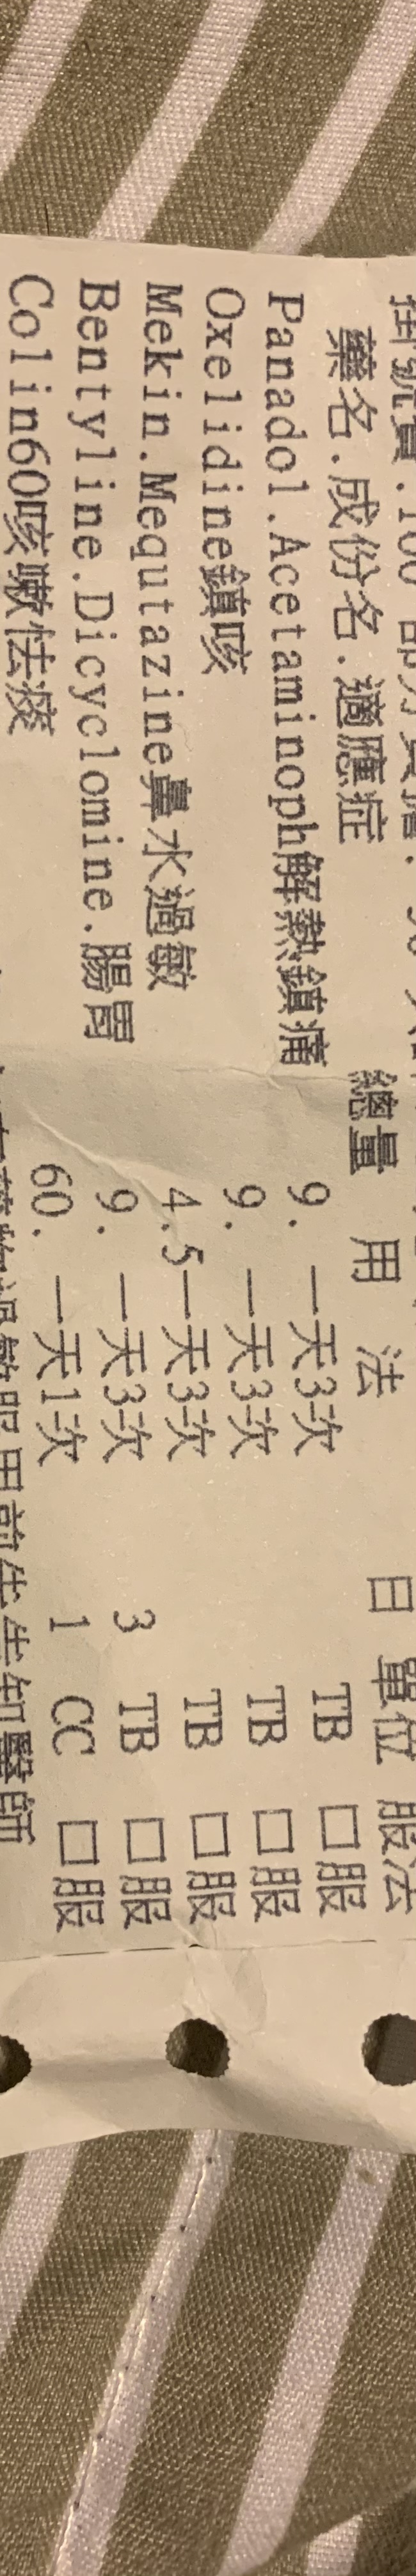 掛號費.100 部分負擔.50
藥名.成份名.適應症 總量 用 法 日 單位 服法
Panadol.Acetaminoph解熱鎮痛 9. 一天3次 TB 口服
Oxelidine鎮咳 9. 一天3次 TB 口服
Mekin.Mequtazine鼻水過敏 4.5一天3次 TB 口服
Bentyline.Dicyclomine.腸胃 9. 一天3次 3 TB 口服
Colin60咳嗽怯痰 60. 一天1次 1 CC 口服
藥物過敏服用前先告知醫師